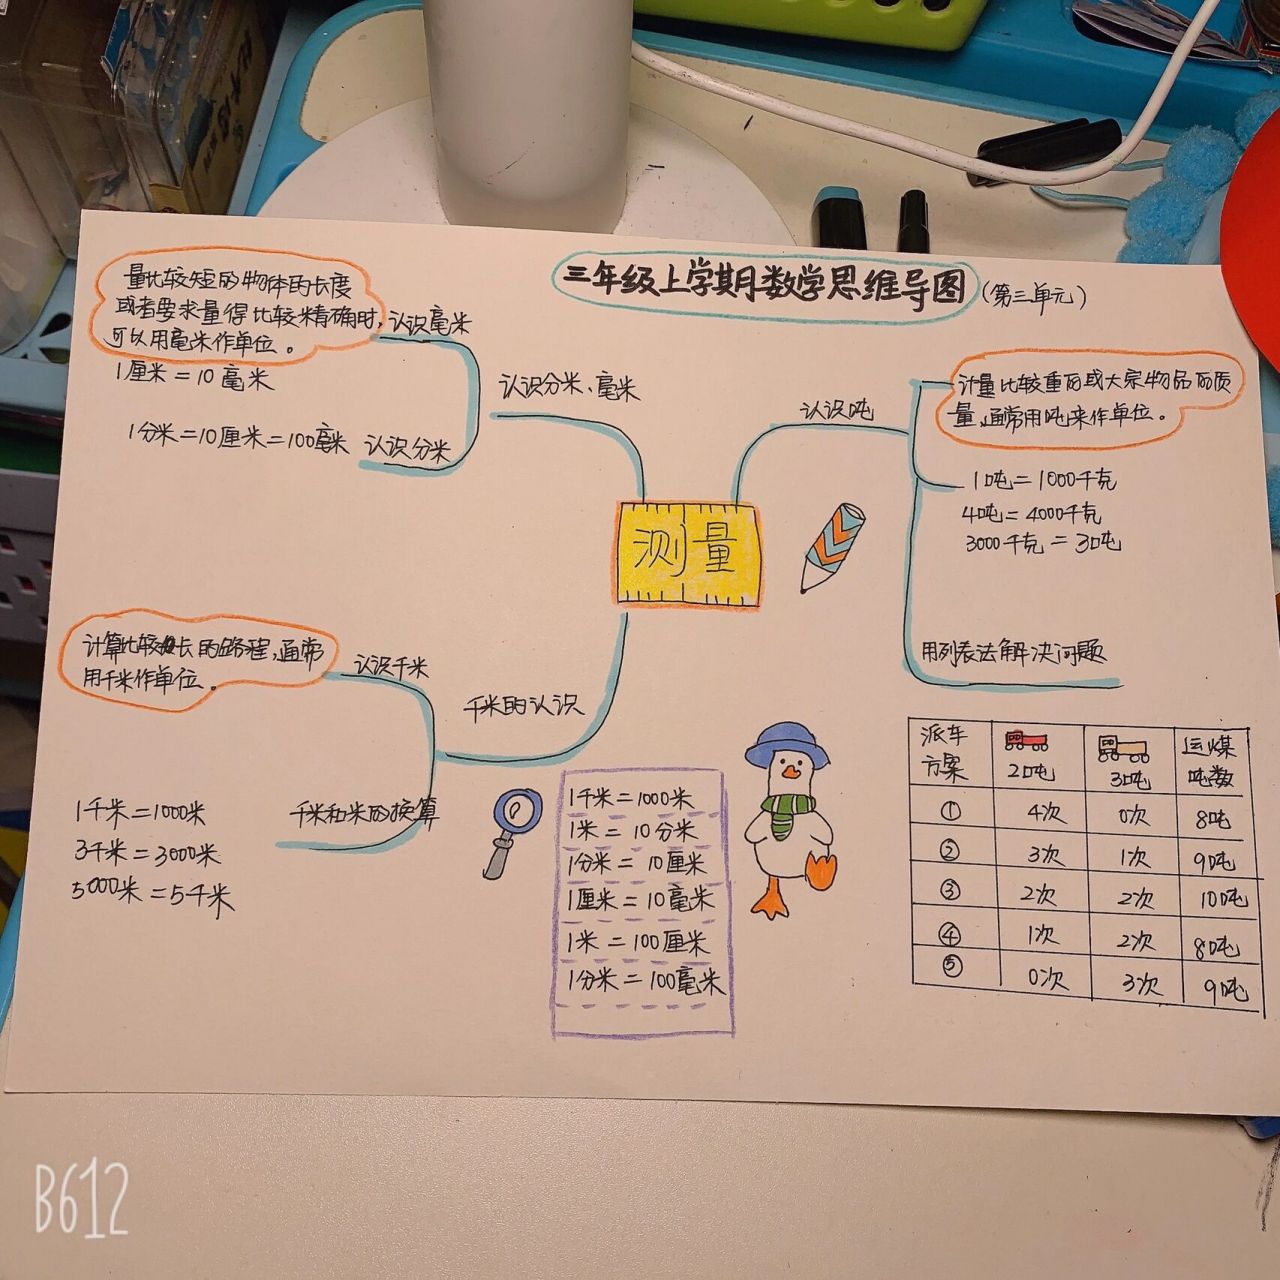 三年级上学期数学思维导图(第三单元)
量比较短的物体的长度
或者要求量得比较精确时,
可以用毫米作单位。
认识毫米
1厘米=10毫米
1分米=10厘米=100毫米
认识分米
认识分米、毫米
认识吨
计量比较重的或大宗物品的质
量,通常用吨来作单位。
1吨=1000千克
4吨=4000千克
3000千克=3吨
用列表法解决问题
测量
计算比较长的路程,通常
用千米作单位。
认识千米
千米的认识
千米和米的换算
1千米=1000米
3千米=3000米
5000米=5千米
1千米=1000米
1米=10分米
1分米=10厘米
1厘米=10毫米
1米=100厘米
1分米=100毫米
派车 运煤
方案 2吨 3吨 吨数
① 4次 0次 8吨
② 3次 1次 9吨
③ 2次 2次 10吨
④ 1次 2次 8吨
⑤ 0次 3次 9吨
B612